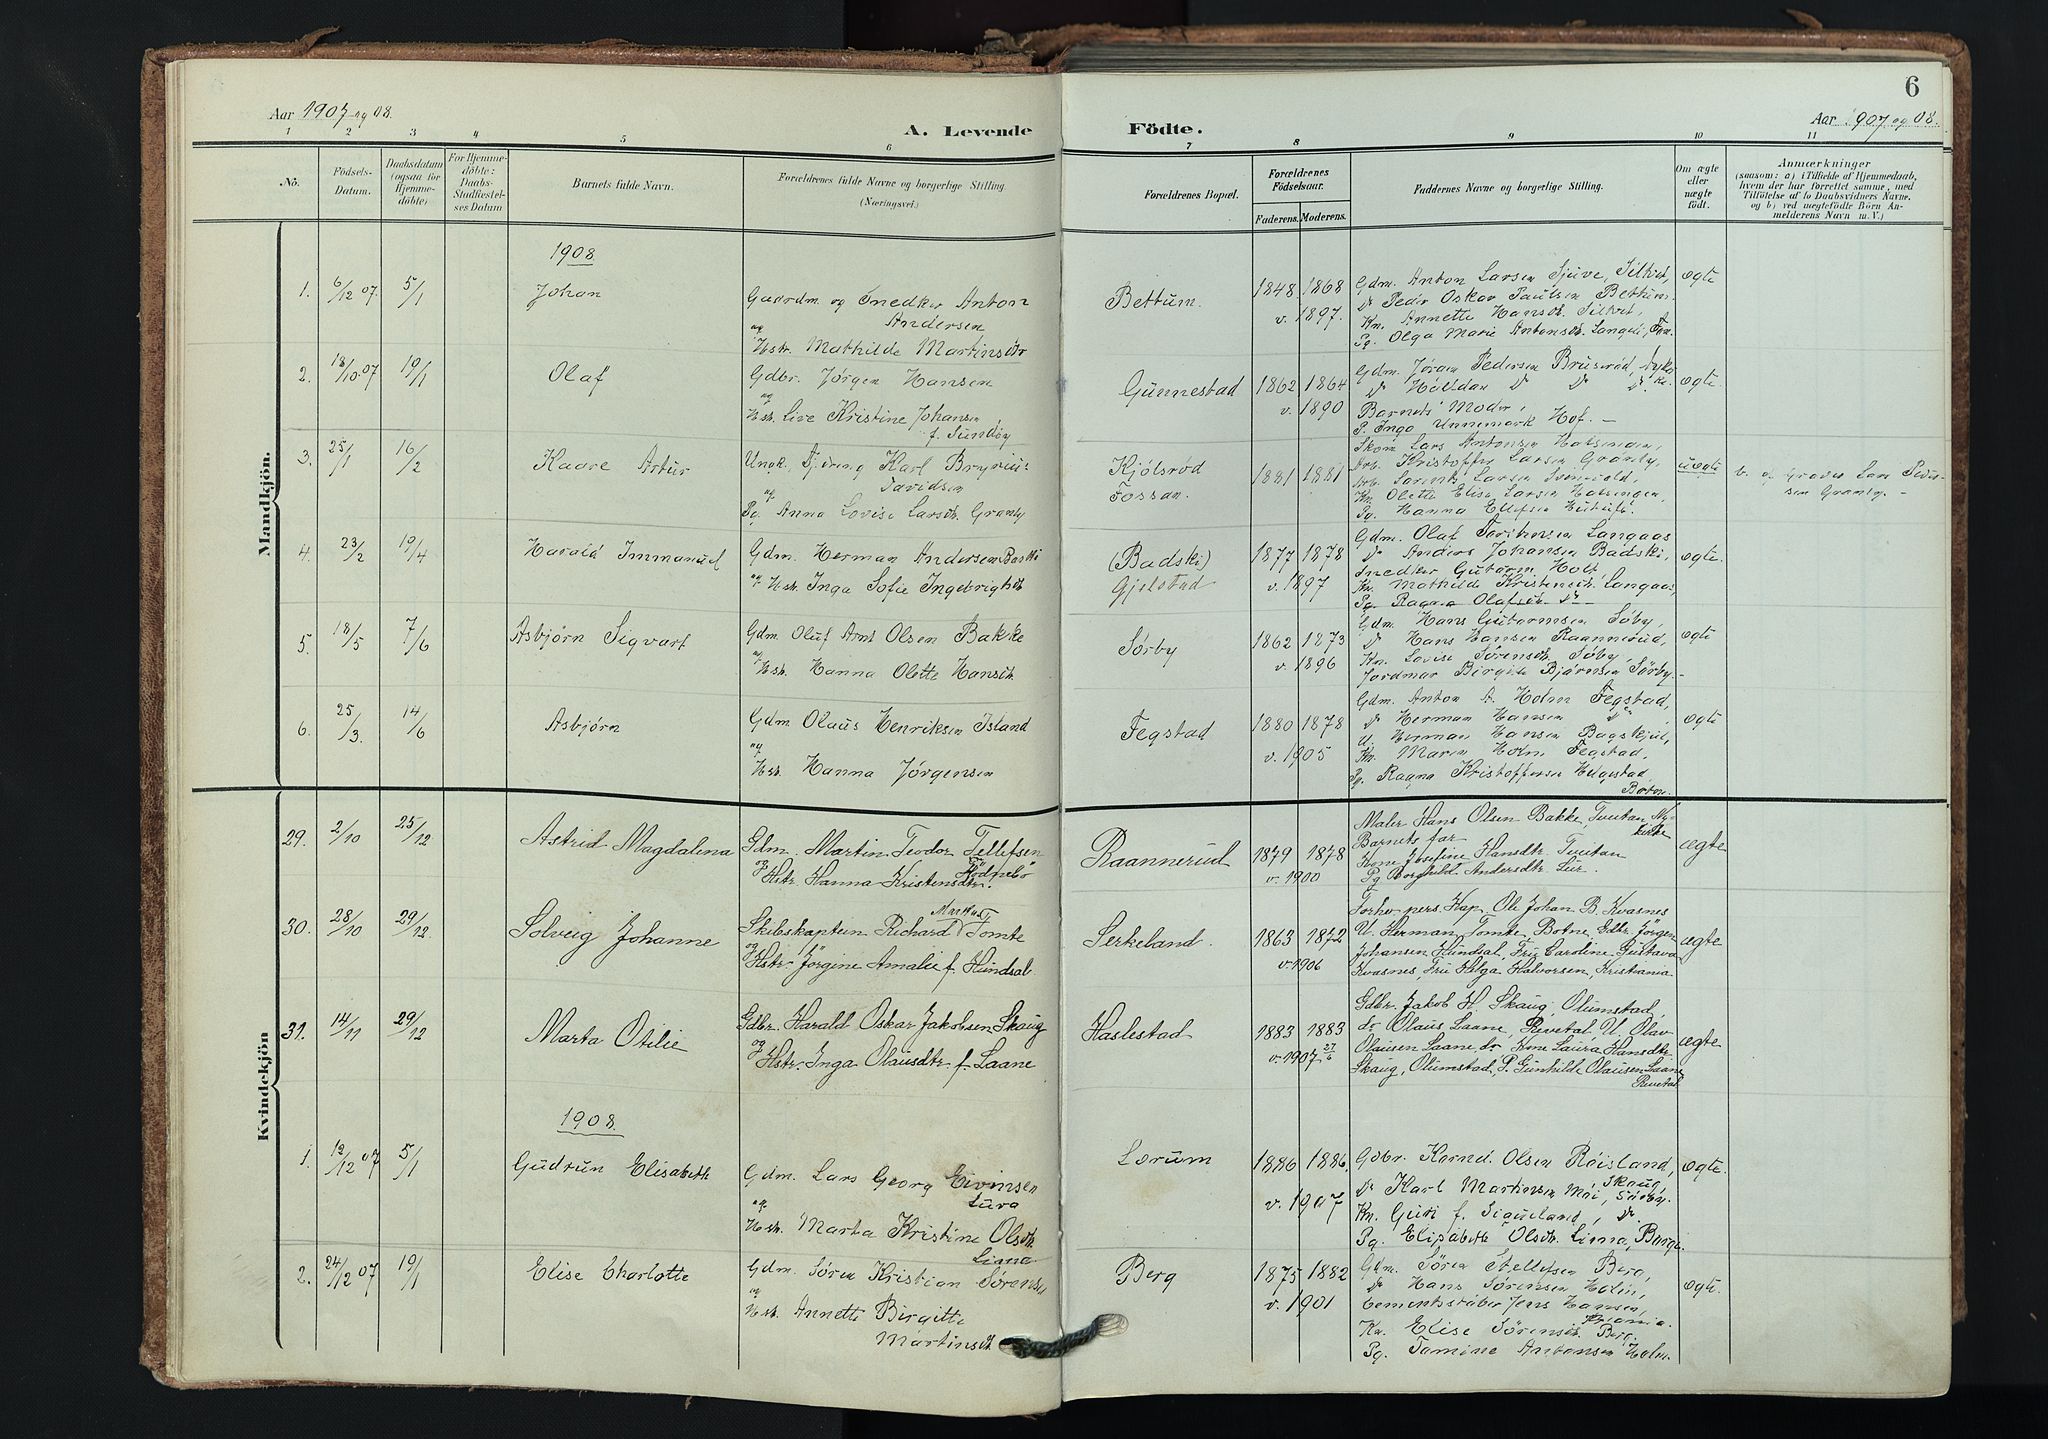 6
Aar 1907 og 08.
A. Levende
Födte.
Aar 1907 og 08.
1 2 3 4 5 6 7 8 9 10 11
No.
Födsels-Datum.
Daabsdatum (ogsaa for Hjemme-döbte)
For Hjemme-döbte: Daabs-Stadfæstel-ses Datum
Barnets fulde Navn.
Forældrenes fulde Navne og borgerlige Stilling.
(Næringsvei.)
Forældrenes Bopæl.
Forældrenes Födselsaar.
Faderens. Moderens.
Faddernes Navne og borgerlige Stilling.
Om ægte eller uægte födt.
Anmærkninger
(saasom: a) i Tilfælde af Hjemmedaab,
hvem der har forrettet samme, med
Tilföielse af to Daabsvidners Navne,
og b) ved uægtefödte Börn An-
melderens Navn m. V.)
Mandkjön.
1908
1. 6/12 07. 5/1 Johan
Gaardm. og Snedker Anton
Andersen
og
Hstr. Mathilde Martinsdtr
Bettum.
1848 1868
v. 1897.
Gdm. Anton Larsen Tjuve, Silkit,
Do Peder Oskar Paulsen Bettum
Kn. Annette Hansdt. Silkit,
Pg. Olga Marie Antonsdt. Langaas,
ægte
2. 18/10 07 19/1 Olaf
Gdbr. Jørgen Hansen
og
Hstr. Live Kristine Johansen
f. Sundøy
Gunnestad
1862 1864
v. 1890
Gdm. Jørgen Pedersen Bruserød,
Do Halldan Do Do Do
Barnets Moder,
P. Inga Unnemark Hof. –
ægte.
3. 25/1 16/2 Kaare Artur
Ungk. Karl Brynius
Davidsen
og
Pg. Anna Lovise Larsdt. Granly
Kjölsröd
Fossan.
1881 1881
Skom. Lars Antonsen
Arb. Kristoffer Larsen Granly,
Arb. Larsen
Kn. Olette Elise Larsen
Pg. Hanna Ellefsen
uægte
b. af Gravdr. Lars
sen Granly. –
4. 23/2 19/4 Harald Immanuel
Gdm. Herman Andersen Baski
og Hstr. Inga Sofie Ingebrigtsdt
(Badski)
Gjelstad
1877 1878
v. 1897
Gdm. Olaf Langaas
Do Anders Johansen Badski,
Snedker Gutorm Holt
Kn. Mathilde Kristensdt. Langaas,
Pg. Ragna Olafsdt. Do
ægte.
5. 18/5 7/6 Asbjörn Sigvart
Gdm. Oluf Arnt Olsen Bakke
og
Hstr. Hanna Olette Hansdt.
Sørby
1862 1873
v. 1896
Gdm. Hans Gutormsen Søby,
Do Hans Hansen Raannerud,
Kn. Lovise Sörensdt. Søby,
Jordmor Birgitte Bjørnsen Sörby.
ægte
6. 25/3. 14/6 Asbjørn
Gdm. Olaus Henriksen Island
og
Hstr. Hanna Jörgensen
Fegstad
1880 1878
v. 1905
Gdm. Anton A. Holm Fegstad,
Do Herman Hansen Do,
U. Herman Hansen Bagskjul,
Kn. Maren Holm Fegstad,
Pg. Ragna Kristoffersen Helgestad
Botne.
ægte
Kvindekjön
29. 2/10 25/12 Astrid Magdalena
Gdm. Martin Teodor Tellefsen
og
Hstr. Hanna Kristensdtr.
Raannerud
1879 1878
v. 1900
Maler Hans Olsen Bakke, Tveitan,
Barnets far
Kone Josefine Hansdtr. Tveitan
Pg Borghild Andersdtr. Lur.
ægte
30. 28/10 29/12. Solveig Johanne
Skibskaptein Richard Markus Tomte
og
Hstr. Jörgine Amalie f. Hundsal.
Serkeland.
1863 1872
v. 1906
Forhv. pers. Kap. Ole Johan B. Kvasnes
U. Herman Tomte Botne, Gdbr. Jörgen
Johansen Hundsal, Fru Caroline Gustava
Kvasnes, Fru Helga Halvorsen, Kristiania
ægte
31. 14/11 29/12 Marta Otilie
Gdbr. Harald Oskar Jakobsen Skaug
og
Hstr. Inga Olausdtr f. Laane
Haslestad
1883 1883
v. 1907 27/6
Gdbr. Jakob H. Skaug, Olumstad,
do Olaus Laane, Revetal. U. Olav
Olausen Laane, do Kone Laura Hansdtr
Skaug, Olumstad, P. Gunhilde Olausen Laane
Revetal
ægte
1908.
1. 12/12 07 5/1 Gudrun Elisabeth
Gdm. Lars Georg Eivinsen
Lura
og
Hstr. Marta Kristine Olsdt.
Linna
Lorum
1886 1886.
v. 1907
Gdbr. Kornd. Olsen Röisland,
Do Karl Martinsen Skaug,
Kn. Guri f. Sigueland, Do
Pg. Elisabeth Olsdt. Linna, Berge.
ægte.
2. 24/12 07 19/1 Elise Charlotte
Gdm. Søren Kristian Sørensen
og
Hstr. Annette Birgitte
Martinsdt.
Berg
1875 1882
v. 1901
Gdm. Sören Stellefsen Berg,
Do Hans Sörensen Holm,
Cementstöber Jens Hansen,
Kr.ania.
Kn. Elise Sörensdt. Berg.
Pg. Tomine Antonsen Holm.
ægte.